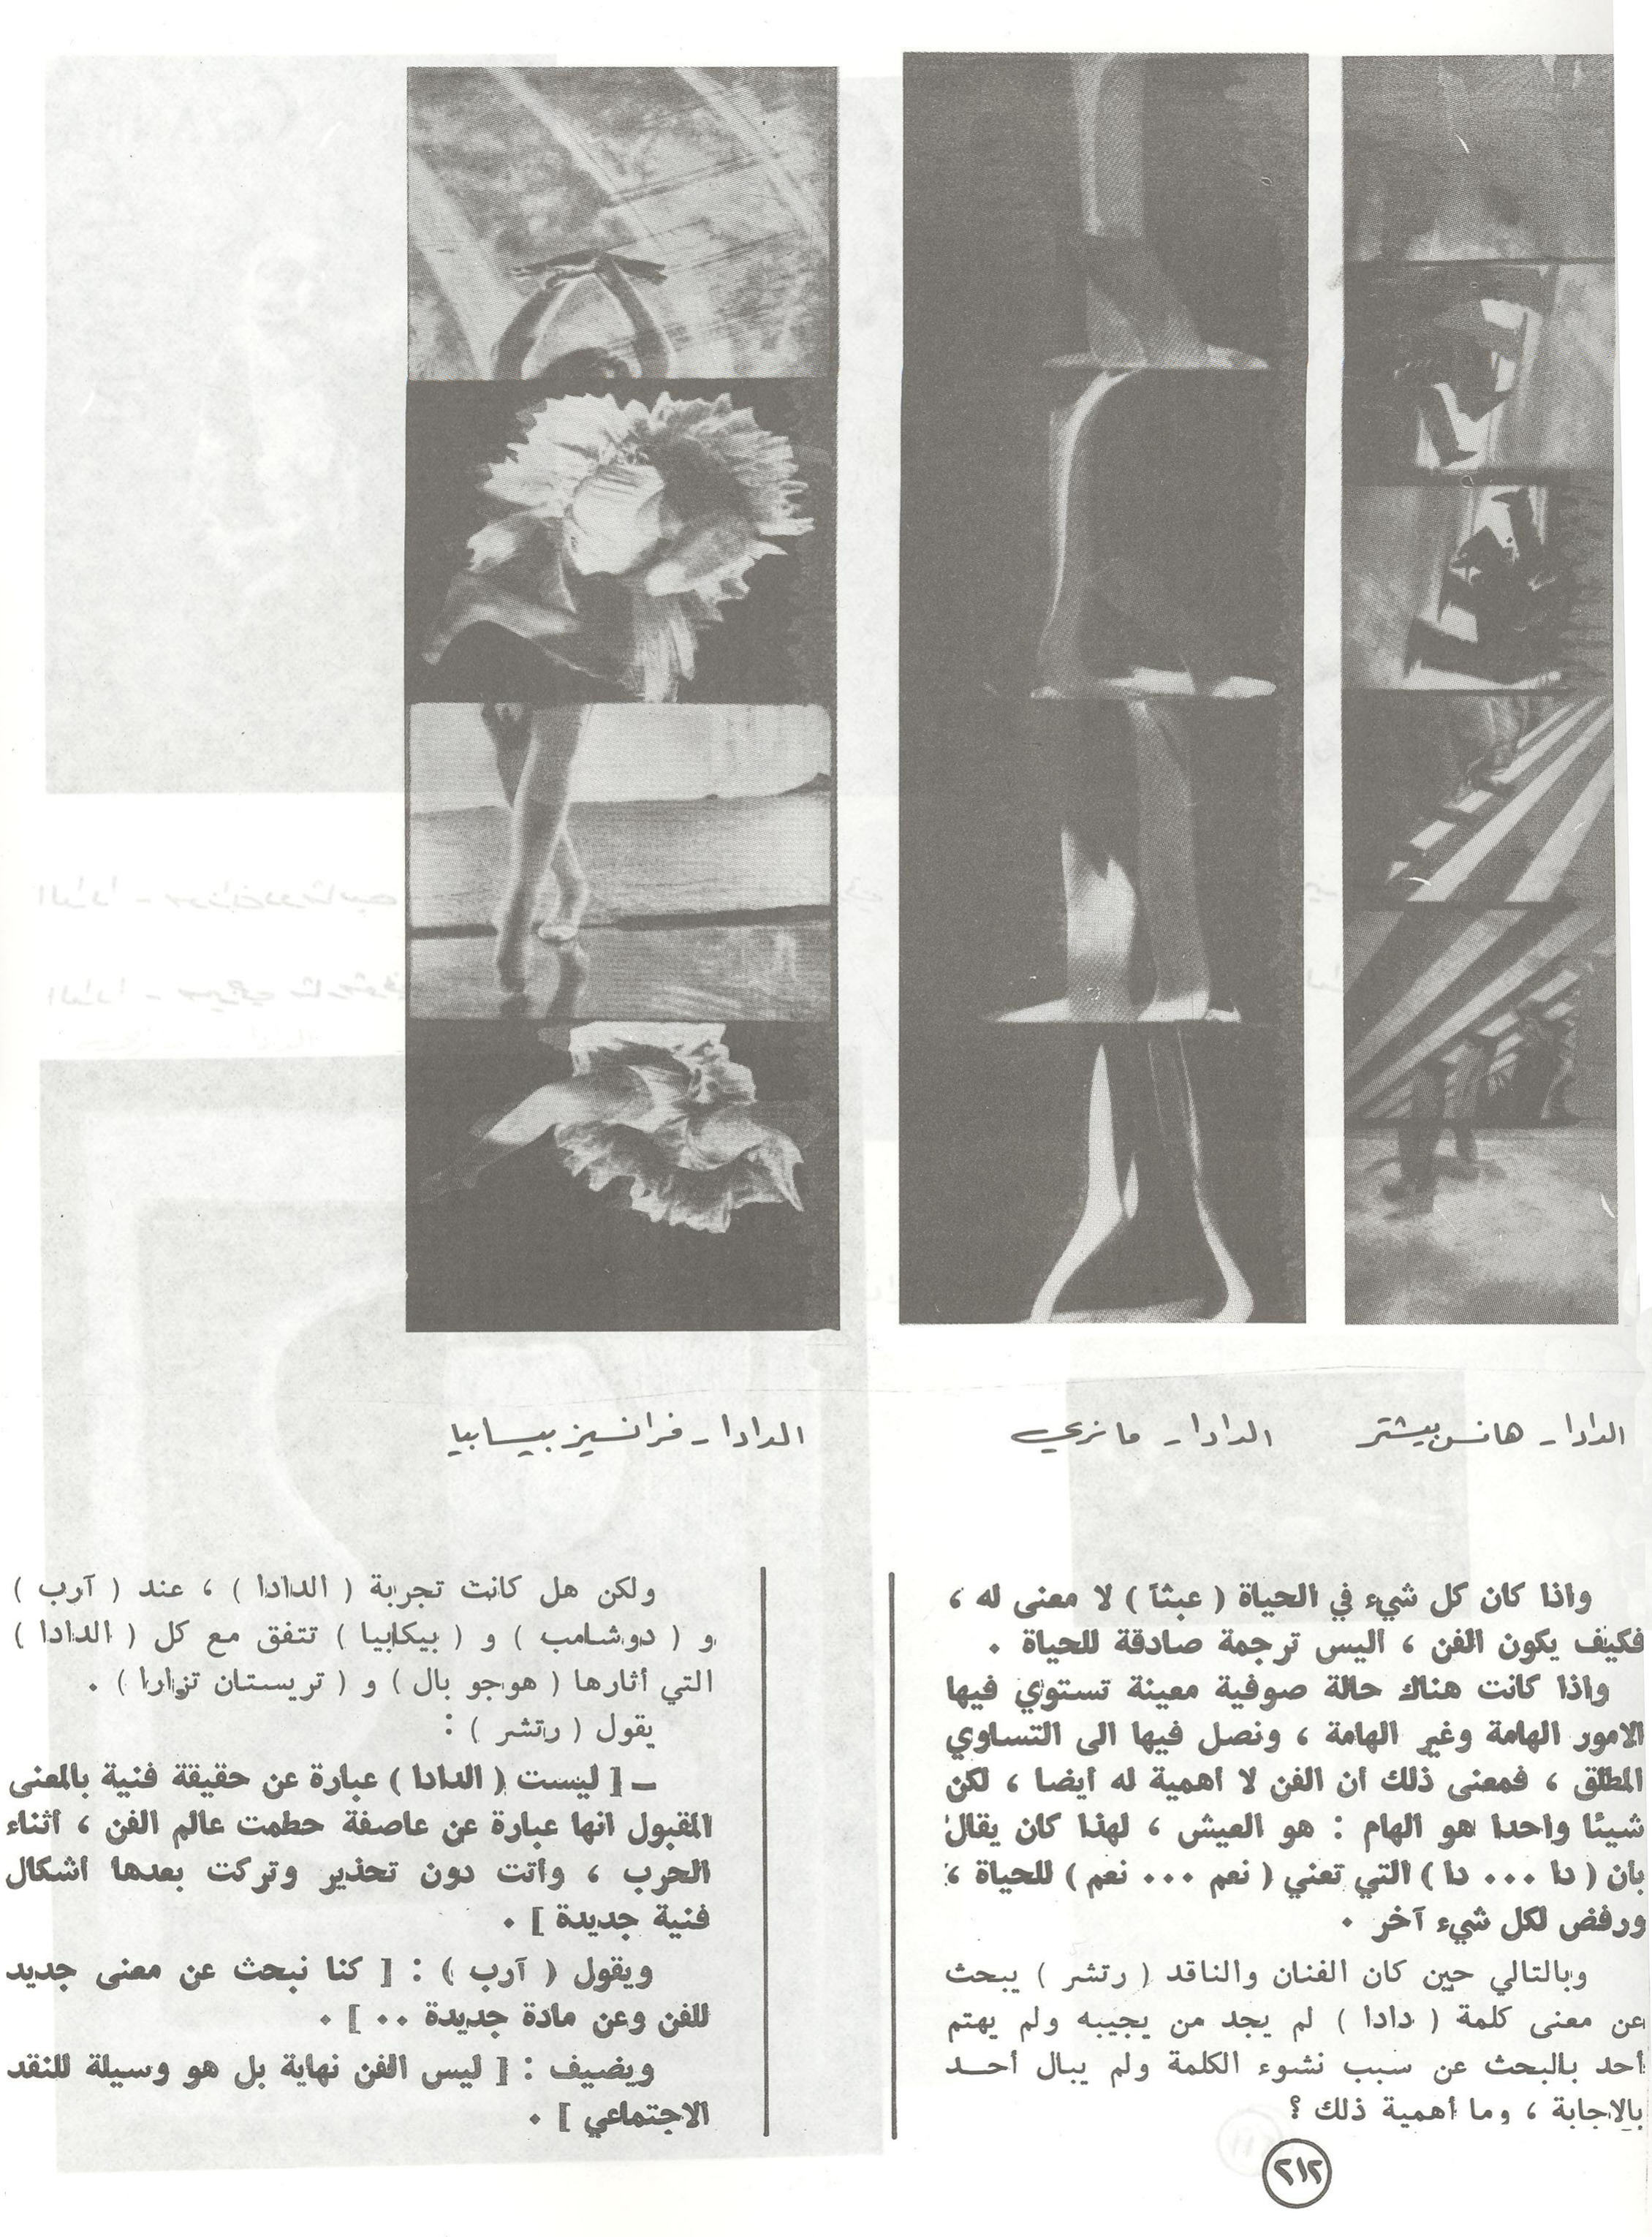 الدادا - هانس بيشتر
الدادا - مانري
الدادا - فرانسيز بيسابيا
واذا كان كل شيء في الحياة ( عبثاً ) لا معنى له ،
فكيف يكون الفن ، اليس ترجمة صادقة للحياة .
واذا كانت هناك حالة صوفية معينة تستوي فيها
الامور الهامة وغير الهامة ، ونصل فيها الى التساوي
المطلق ، فمعنى ذلك أن الفن لا أهمية له أيضا ، لكن
شيئا واحدا هو الهام : هو العيش ، لهذا كان يقال
بأن ( دا ... دا ) التي تعني ( نعم ... نعم ) للحياة ،
ورفض لكل شيء آخر .
وبالتالي حين كان الفنان والناقد ( رتشر ) يبحث
عن معنى كلمة ( دادا ) لم يجد من يجيبه ولم يهتم
أحد بالبحث عن سبب نشوء الكلمة ولم يبال أحــد
بالاجابة ، وما أهمية ذلك ؟
ولكن هل كانت تجربة ( الدادا ) ، عند ( آرب )
و ( دوشامب ) و ( بيكابيا ) تتفق مع كل ( الدادا )
التي أثارها ( هوجو بال ) و ( تريستان تزارا ) .
يقول ( رتشر ) :
ــ [ ليست ( الدادا ) عبارة عن حقيقة فنية بالمعنى
المقبول انها عبارة عن عاصفة حطمت عالم الفن ، أثناء
الحرب ، وأتت دون تحذير وتركت بعدها أشكال
فنية جديدة ] .
ويقول ( آرب ) : [ كنا نبحث عن معنى جديد
للفن وعن مادة جديدة .. ] .
ويضيف : [ ليس الفن نهاية بل هو وسيلة للنقد
الاجتماعي ] .
٢١٢